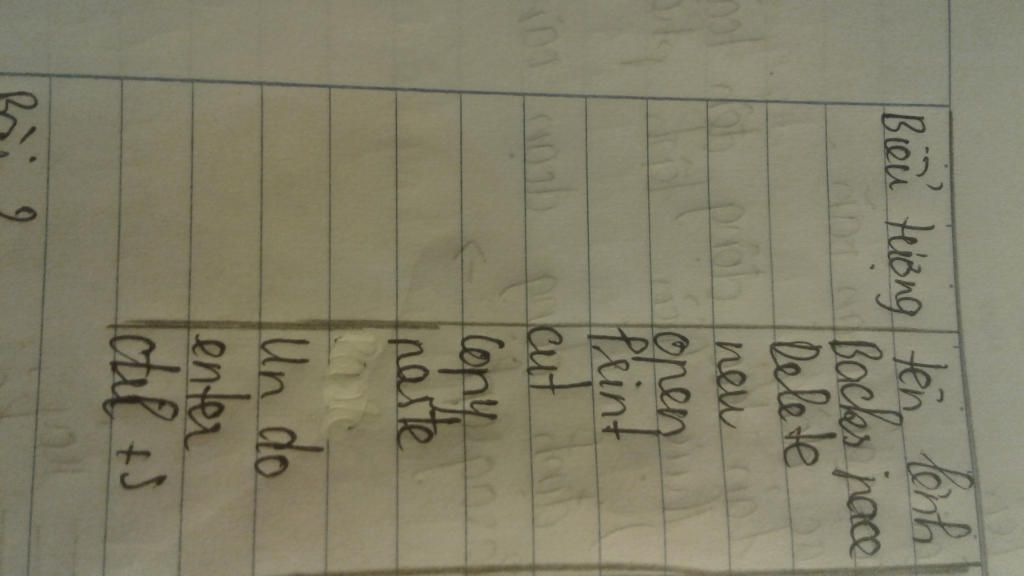 Biểu tượng tên lệnh
Backs pace
Delete
new
open
Print
cut
Copy
paste
Un do
enter
ctrl +S
Bài 2